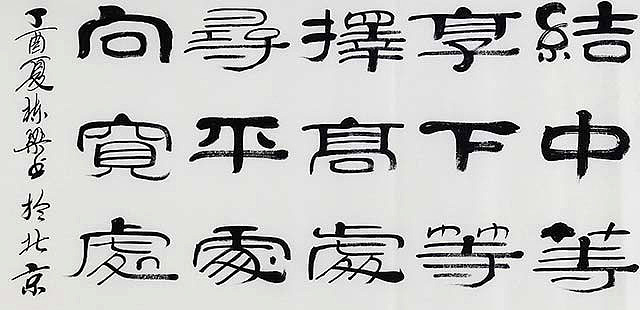 結中等
享下等
擇髙處
尋平處
向寬處
丁酉夏栋梁书於北京